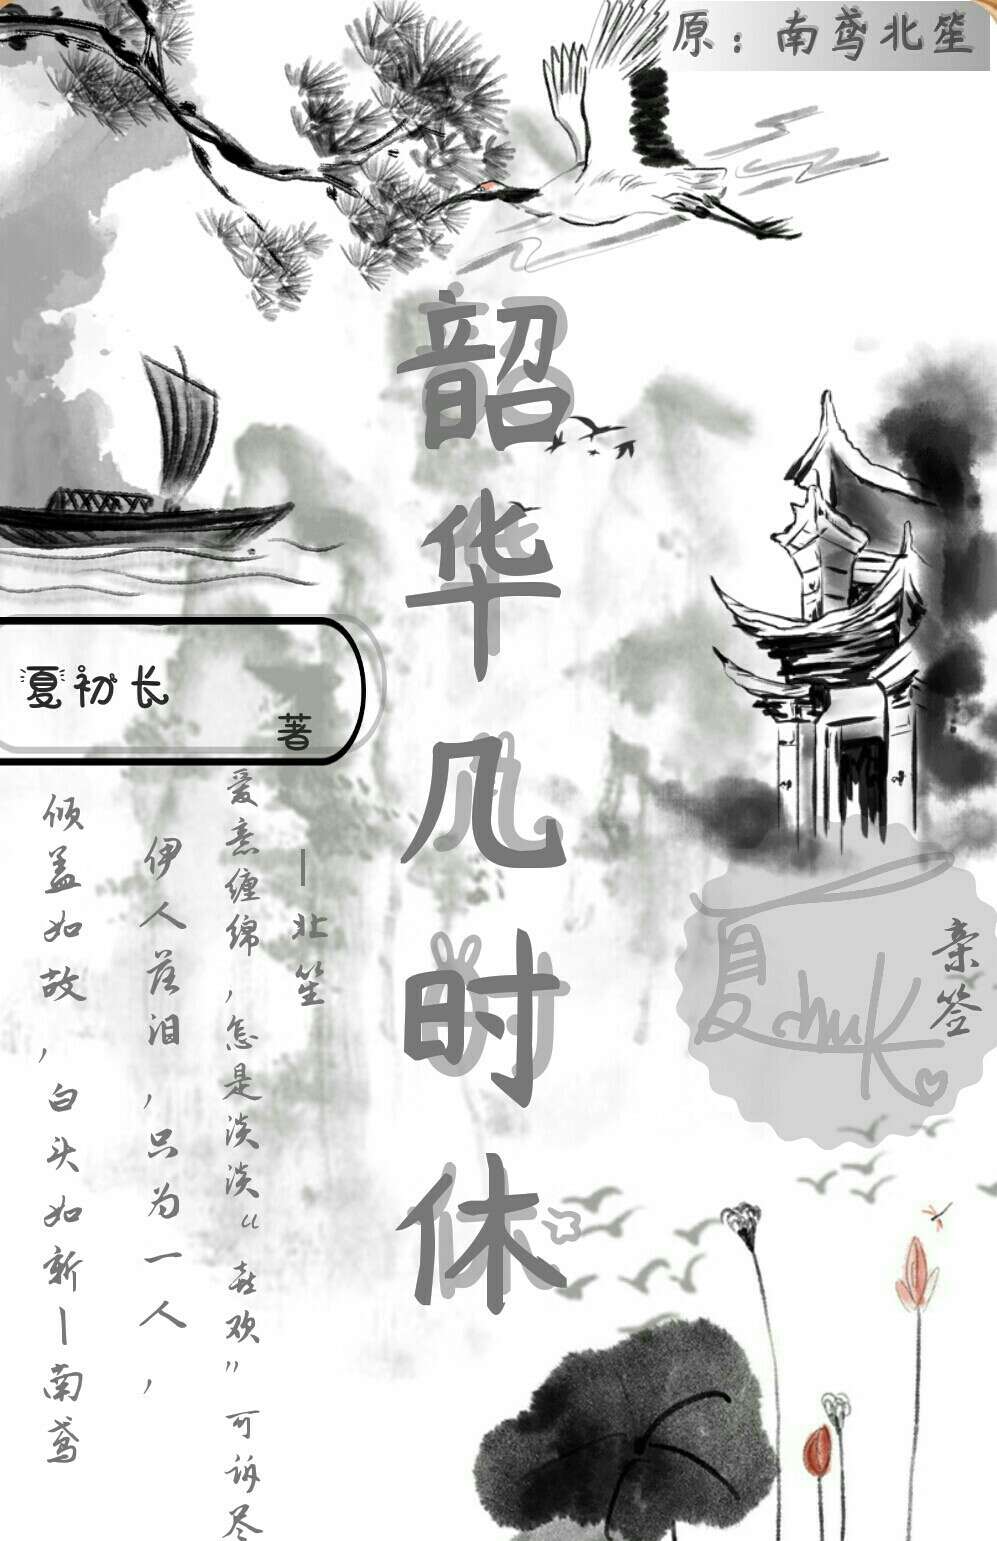 原：南鸢北笙
韶华几时休
夏初长
著
亲签
夏chuk
倾盖如故，白头如新—南鸢
伊人落泪，只为一人，
爱意缠绵，怎是淡淡“喜欢”可诉尽
—北笙